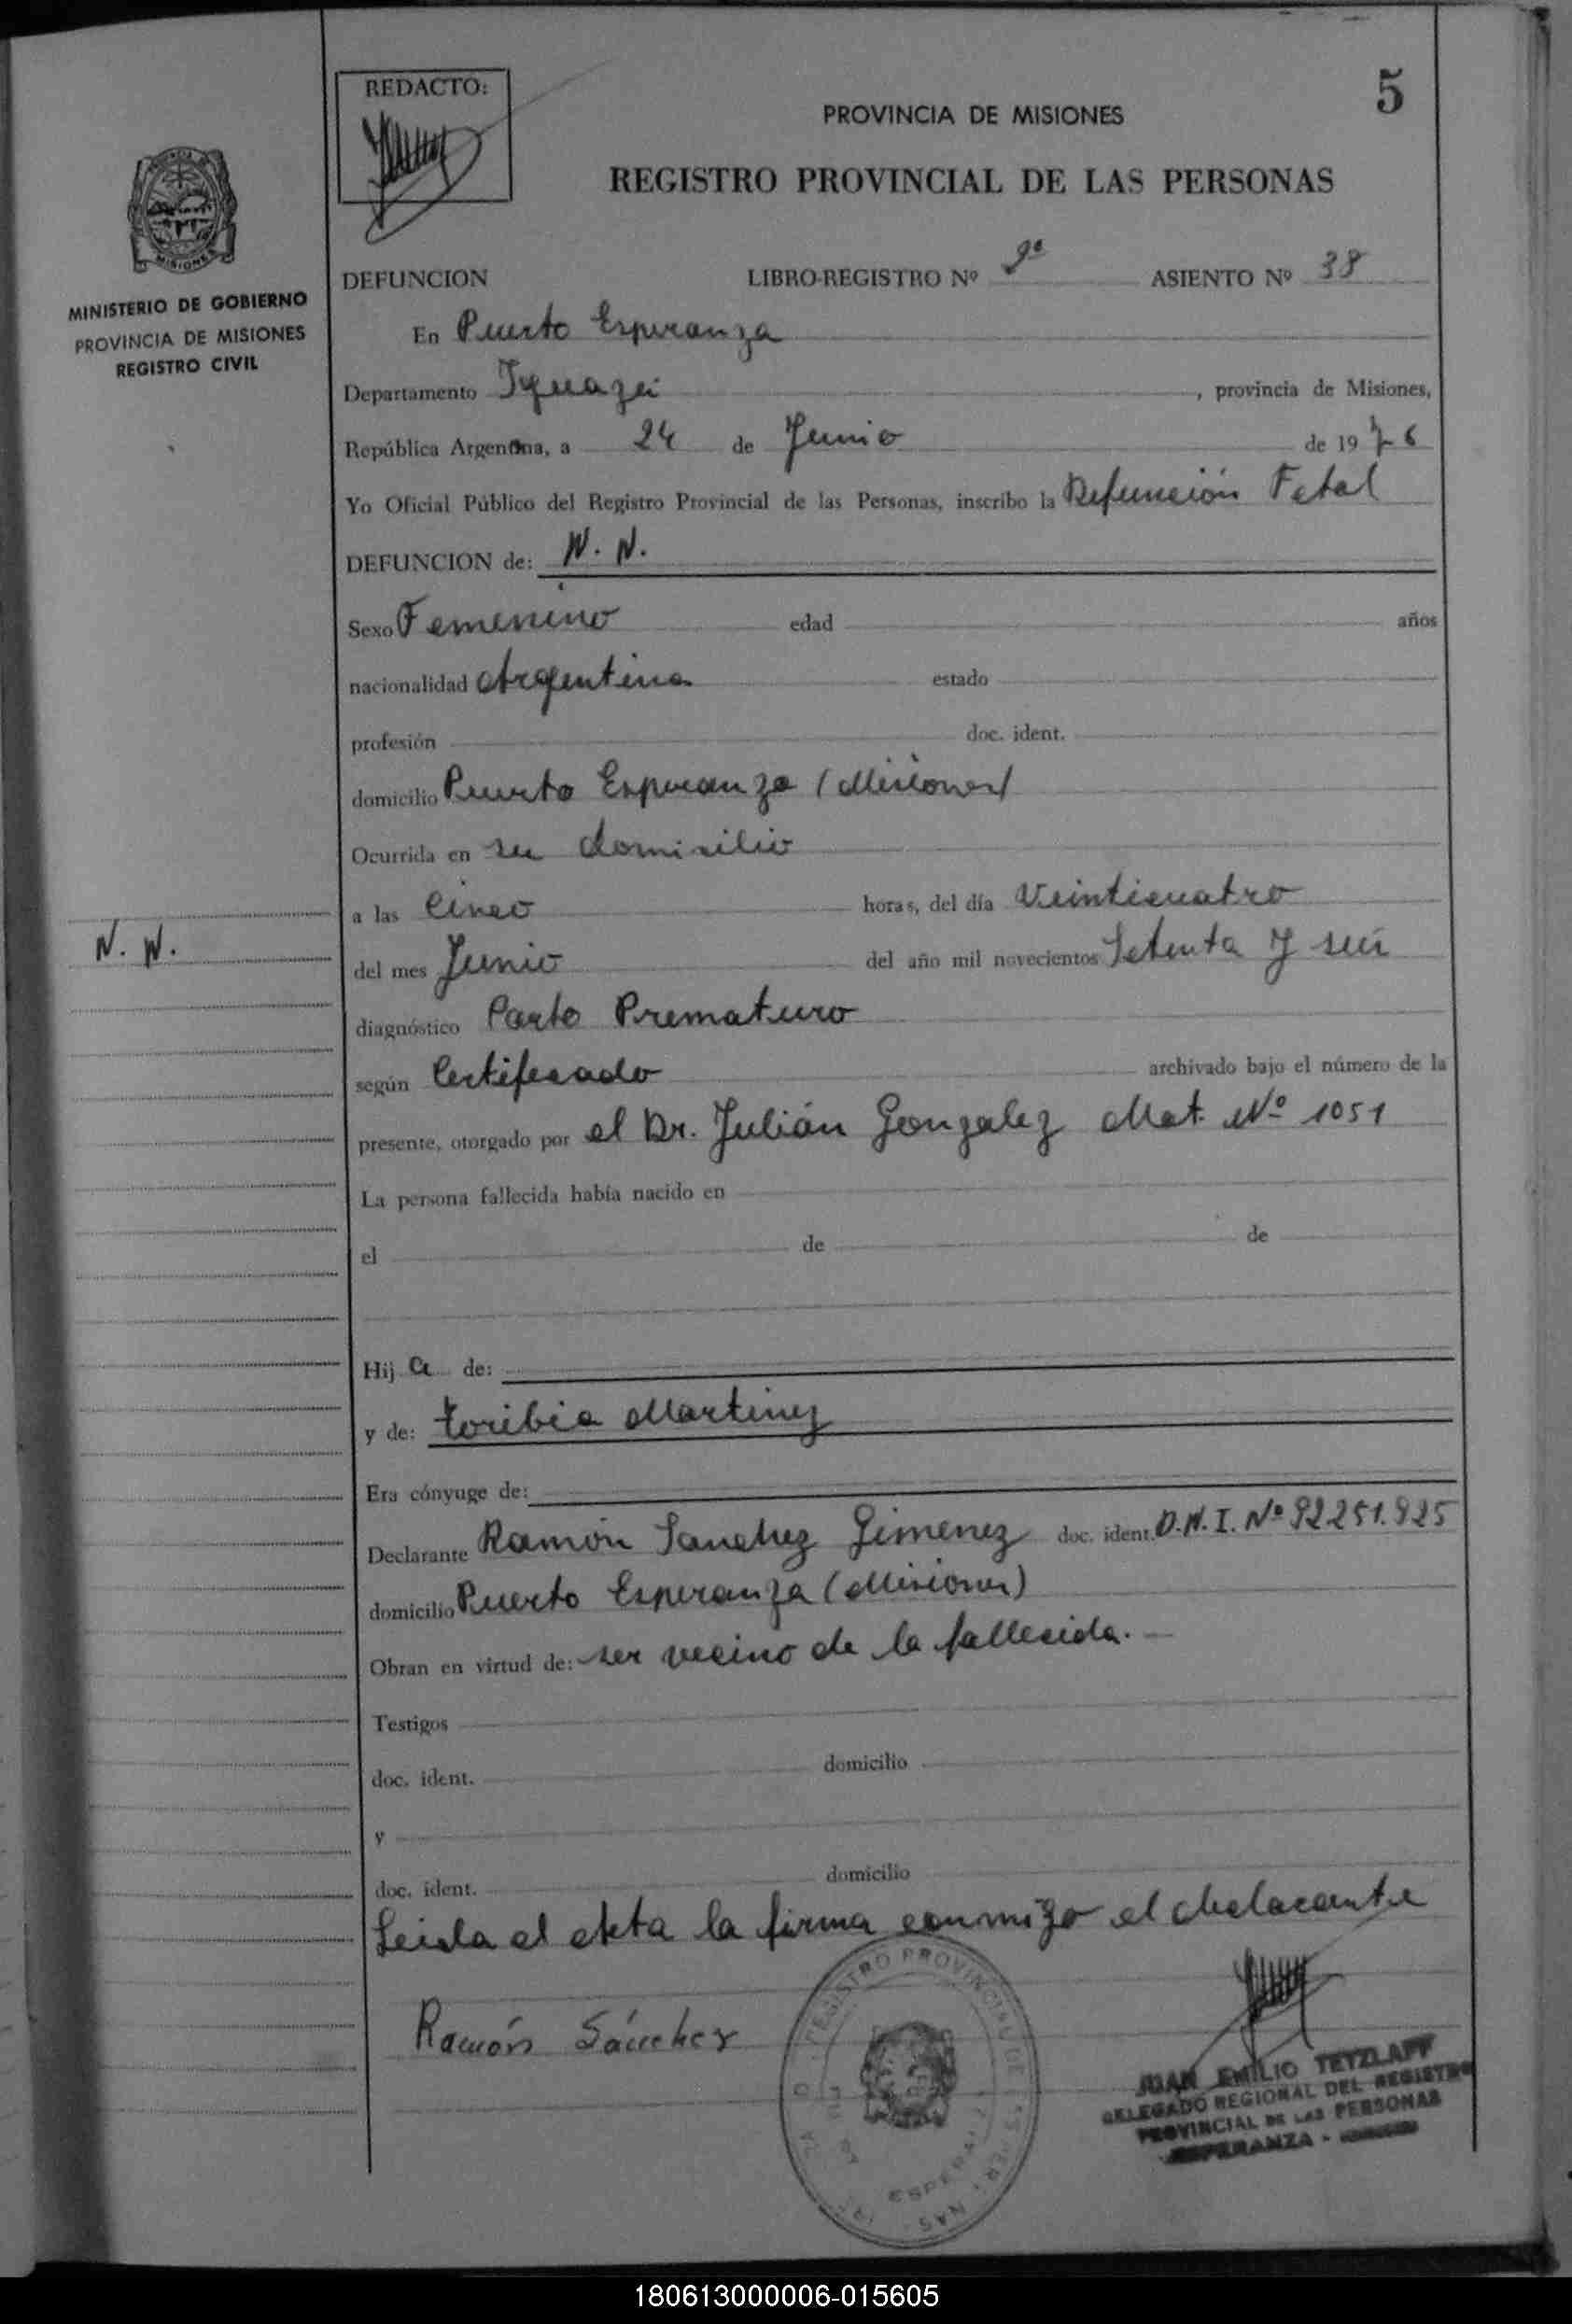 5
REDACTO:
PROVINCIA DE MISIONES
REGISTRO PROVINCIAL DE LAS PERSONAS
MISIONES
MINISTERIO DE GOBIERNO
PROVINCIA DE MISIONES
REGISTRO CIVIL
DEFUNCION LIBRO-REGISTRO Nº 2º ASIENTO Nº 38
En Puerto Esperanza
Departamento Iguazú, provincia de Misiones,
República Argentina, a 24 de Junio de 1976
Yo Oficial Público del Registro Provincial de las Personas, inscribo la Defunción Fetal
DEFUNCION de: N. N.
Sexo Femenino edad años
nacionalidad Argentina estado
profesión doc. ident.
domicilio Puerto Esperanza (Misiones)
Ocurrida en su domicilio
a las Cinco horas, del día Veinticuatro
N. N.
del mes Junio del año mil novecientos Setenta y seis
diagnóstico Parto Prematuro
según Certificado archivado bajo el número de la
presente, otorgado por el Dr. Julián Gonzalez Mat. Nº 1051
La persona fallecida había nacido en
el de de
Hija de:
y de: Toribia Martinez
Era cónyuge de:
Declarante Ramón Sanchez Gimenez doc. ident. D.N.I. Nº 92251.925
domicilio Puerto Esperanza (Misiones)
Obran en virtud de: ser vecino de la fallecida.-
Testigos
doc. ident. domicilio
y
doc. ident. domicilio
Leida el Acta la firma conmigo el declarante
Ramón Sánchez
REGISTRO PROVINCIAL DE LAS PERSONAS
JUAN EMILIO TETZLAFF
DELEGADO REGIONAL DEL REGISTRO
PROVINCIAL DE LAS PERSONAS
ESPERANZA -
180613000006-015605